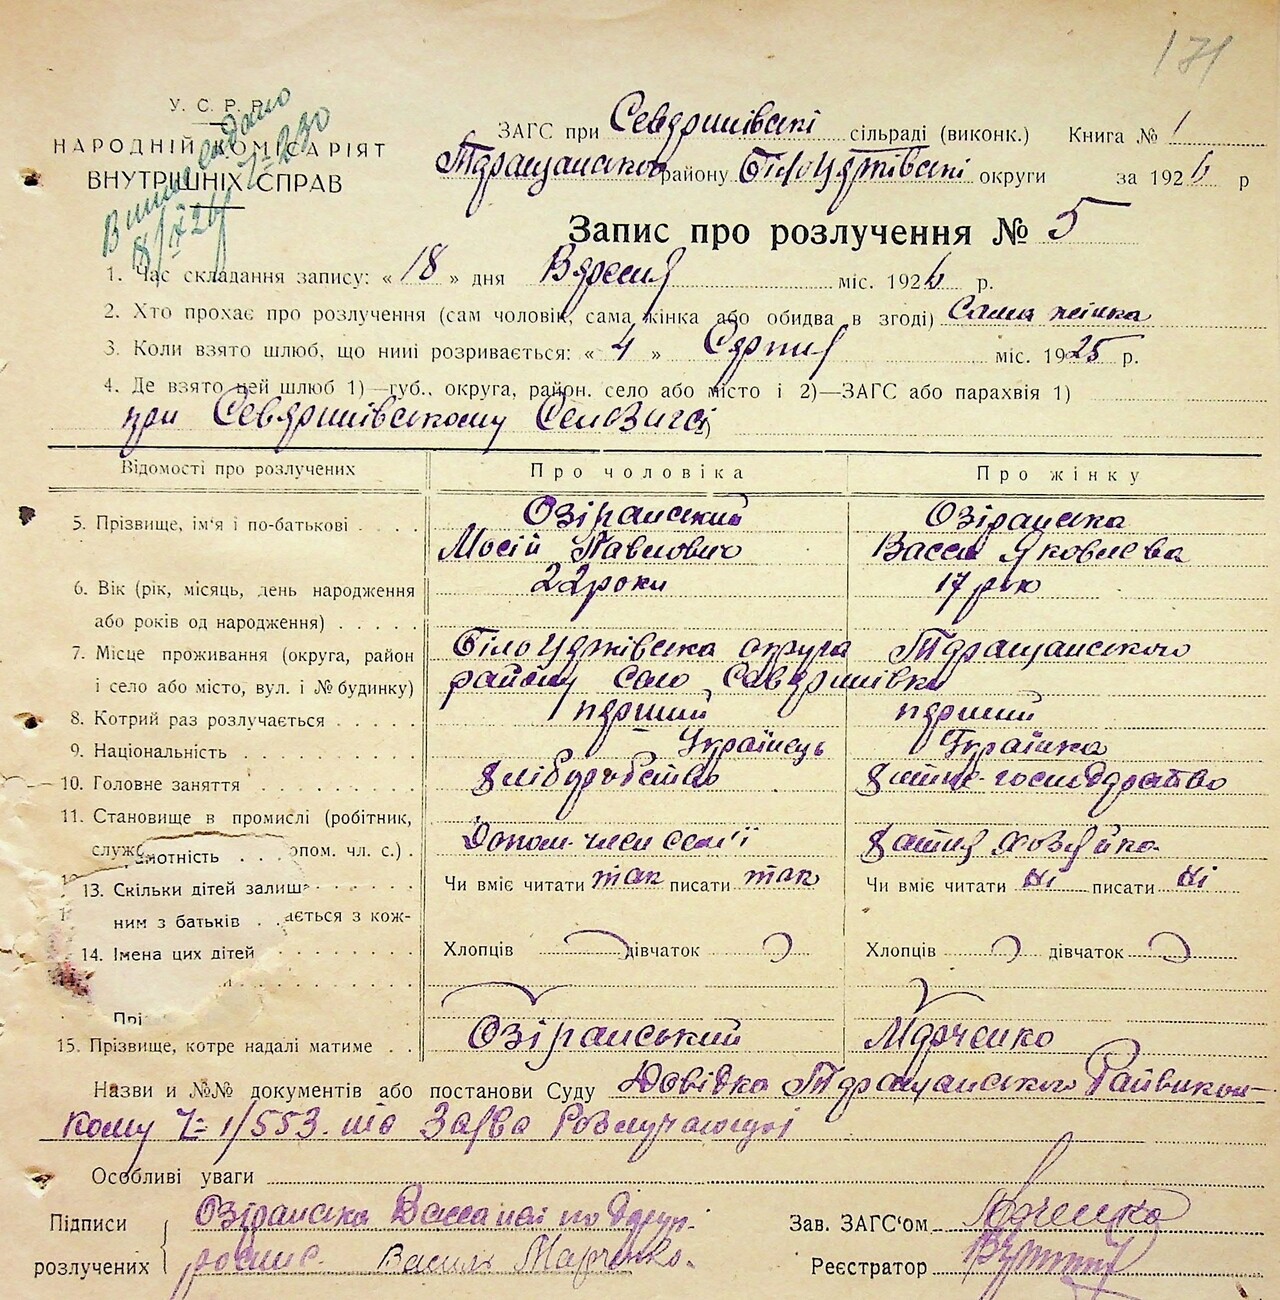 171
У. С. Р. Р.
НАРОДНІЙ КОМІСАРІЯТ
ВНУТРІШНІХ СПРАВ
ЗАГС при Севяринівскі сільраді (виконк.) Книга № 1
Тяращанського району БілоЦярківскі округи за 1926 р
Запис про розлучення № 5
1. Час складання запису: « 18 » дня Вяресня міс. 1926 р.
2. Хто прохає про розлучення (сам чоловік, сама жінка або обидва в згоді) Сама жінка
3. Коли взято шлюб, що нині розривається: « 4 » Сярпня міс. 1925 р.
4. Де взято цей шлюб 1)—губ., округа, район, село або місто і 2)—ЗАГС або парахвія 1)
при Севяринівському
Відомості про розлучених Про чоловіка Про жінку
5. Прізвище, ім'я і по-батькові . . . . Озіранський Озіранська
Мосій Павлович Васса Яковлєва
6. Вік (рік, місяць, день народження 22 роки 17 рок
або років од народження) . . . . .
7. Місце проживання (округа, район БілоЦярківска округа Тяращанського
і село або місто, вул. і № будинку) району село Севяринівка
8. Котрий раз розлучається . . . . . пярший пярший
9. Національність . . . . . Українець Українка
10. Головне заняття . . . . . хліборобство хатне-господарство
11. Становище в промислі (робітник,
служ опом. чл. с.) . Допом. член сем'ї хатня хозяйка
мотність . . . Чи вміє читати так писати так Чи вміє читати ні писати ні
13. Скільки дітей залиш
ним з батьків . . ається з кож-
14. Імена цих дітей . . . . . Хлопців дівчаток Хлопців дівчаток
Прі
15. Прізвище, котре надалі матиме . . Озіранський Марченко
Назви и №№ документів або постанови Суду Довідка Тяращанського Райвикон-
кому Ч= 1/553. та Заява Розлучающої
Особливі уваги
Підписи Озіранска Васса
розлучених Василь Марченко.
Зав. ЗАГС'ом
Реєстратор